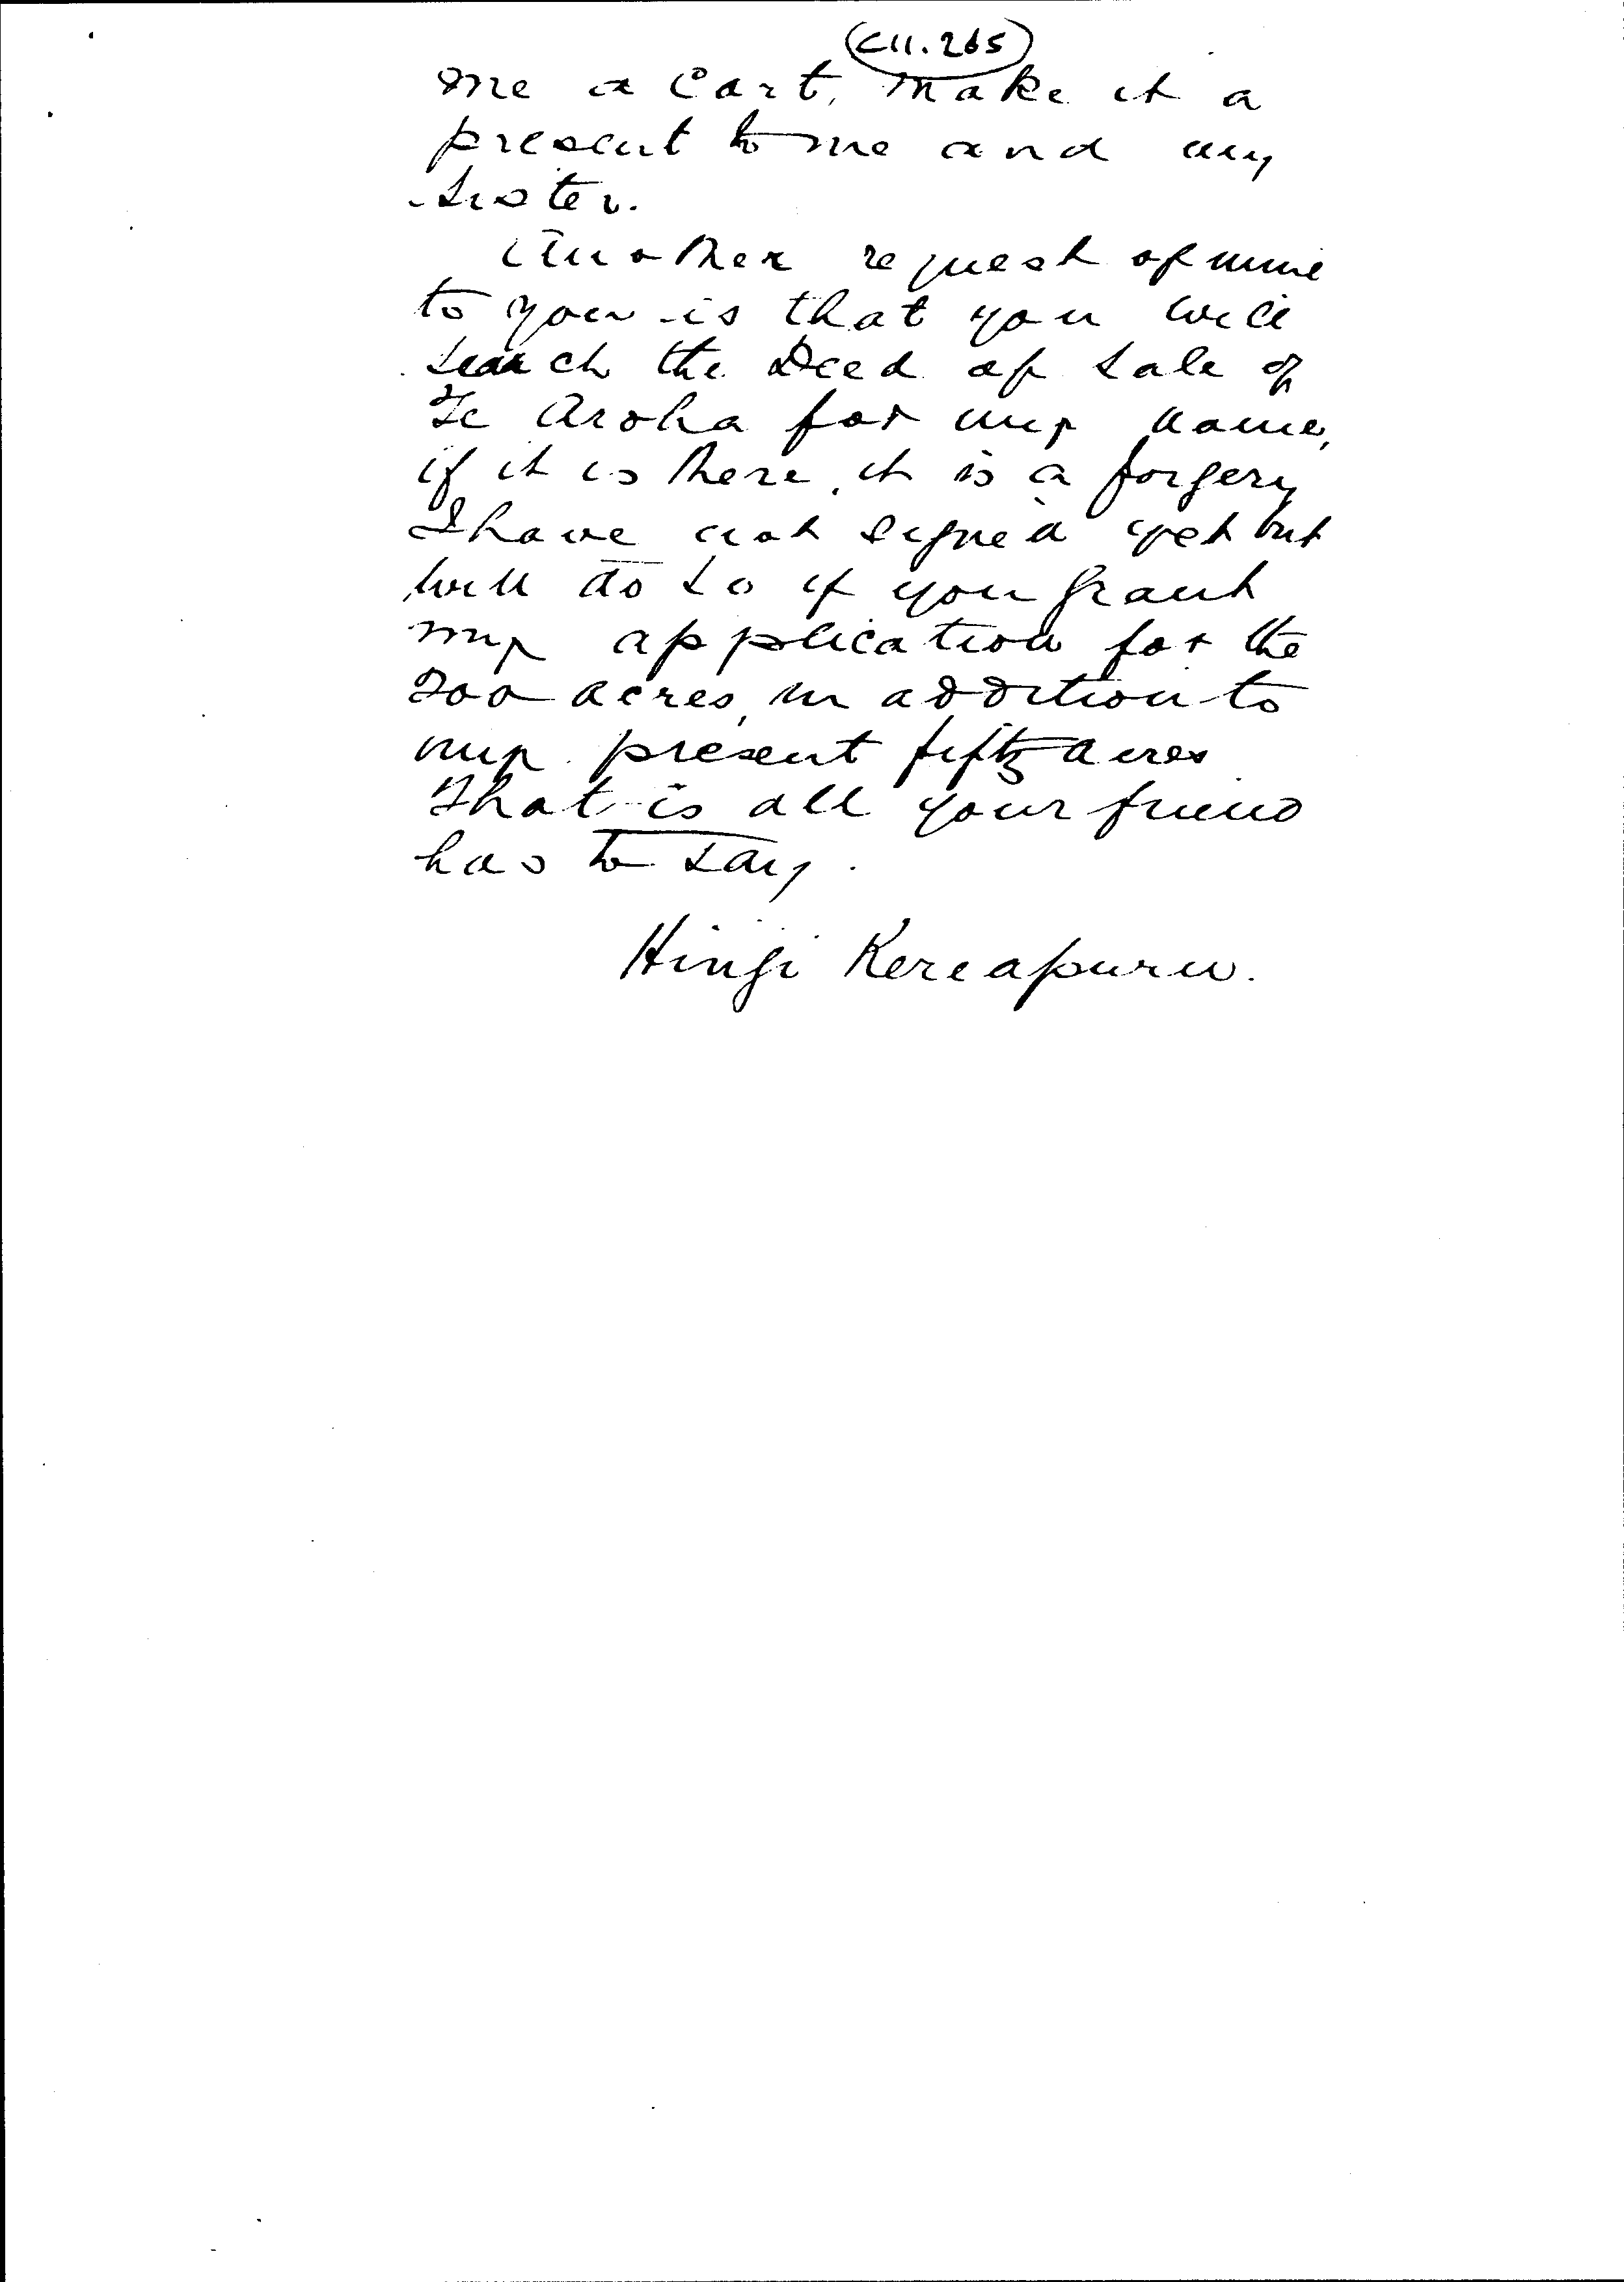 C11.265
me a Cart, Make it a
present to me and my
Sister.
Another request of mine
to you is that you will
search the Deed of Sale of
Te Aroha for my name,
if it is there, it is a forgery
I have not signed yet but
will do so if you grant
my application for the
200 acres, in addition to
my present fifty acres
That is all your friend
has to say.
Hingi Kereapuru.